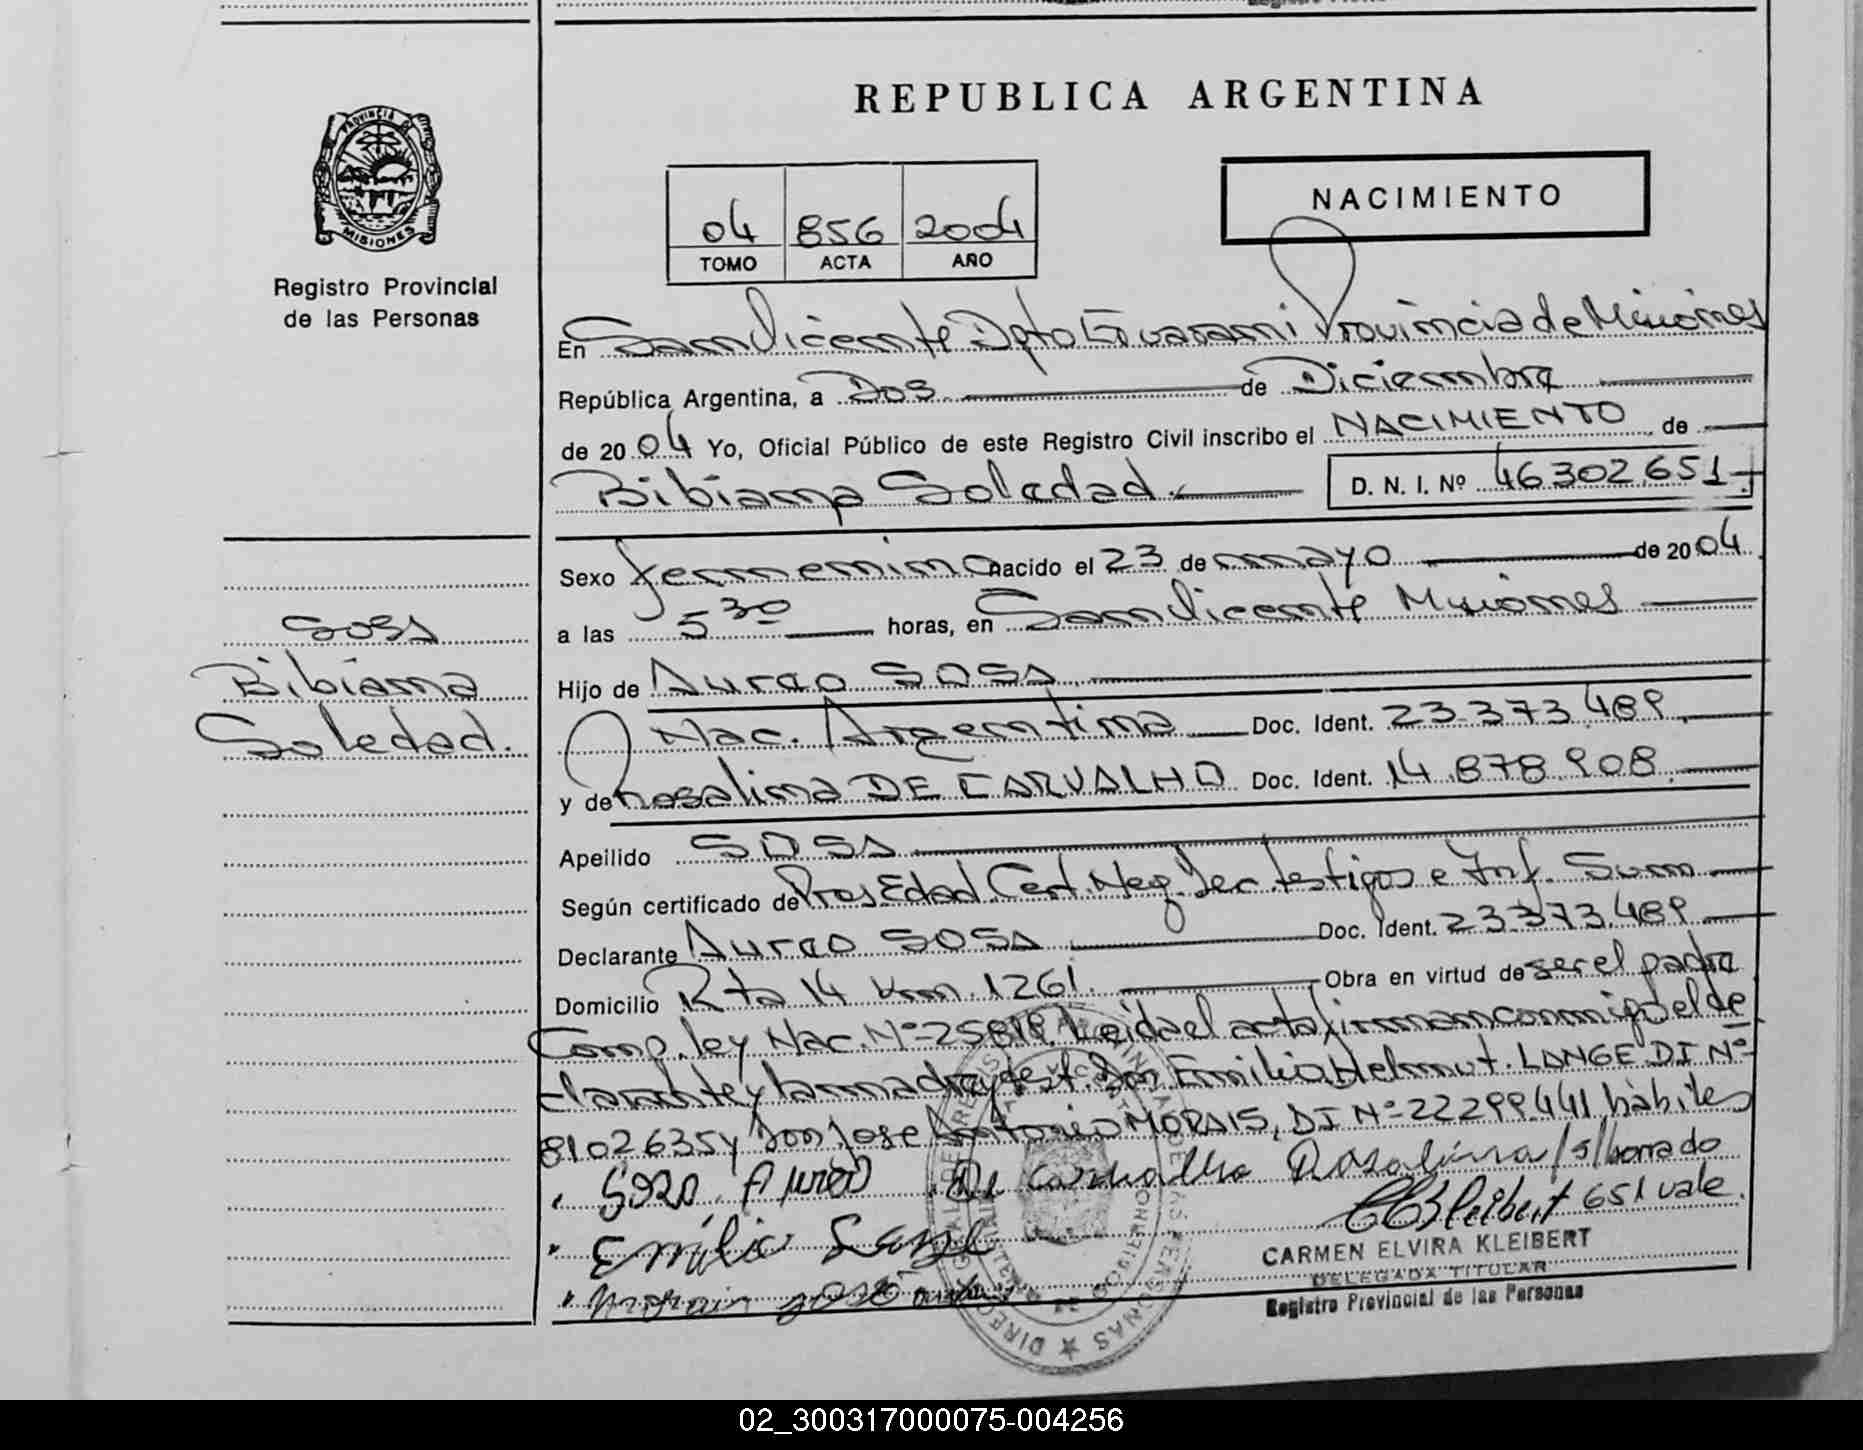 REPUBLICA ARGENTINA
PROVINCIA DE
MISIONES
Registro Provincial
de las Personas
04 856 2004
TOMO ACTA AÑO
NACIMIENTO
En San Vicente Dpto Guarani Provincia de Misiones
República Argentina, a Dos de Diciembre
de 2004 Yo, Oficial Público de este Registro Civil inscribo el NACIMIENTO de
Bibiana Soledad. D. N. I. Nº 46302.651
Sexo femenino nacido el 23 de mayo de 2004
a las 5 30 horas, en San Vicente Misiones
Sosa
Bibiana
Soledad.
Hijo de Aureo SOSA
Nac. Argentina Doc. Ident. 23.373.489
y de Rosalina DE CARVALHO Doc. Ident. 14.878.908
Apellido SOSA
Según certificado de Pres Edad Cert. Neg. testigos e Inf. Sum
Declarante Aureo SOSA Doc. Ident. 23.373.489
Domicilio Rta 14 Km. 1261. Obra en virtud de ser el padre
Comp. ley Nac. Nº 25819. Leida el acta firman conmigo el de
clarante y la madre y de st. Don Emilio Helmut. LANGE DI Nº
8102635 y Don Jose Antonio MORAIS, DI Nº 22299441 hábiles
Sosa Aureo De Carvalho Rosalina /s/borrado
651 vale.
Emilio Lange
CARMEN ELVIRA KLEIBERT
DELEGADA TITULAR
Registro Provincial de las Personas
02_300317000075-004256